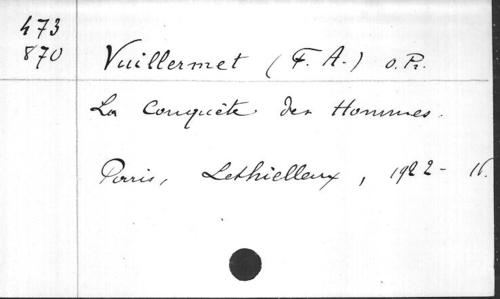 473
870
Vuillermet (F. A.) O.P.
La Conquête des Hommes.
Paris, Lethielleux, 1922 - 16.